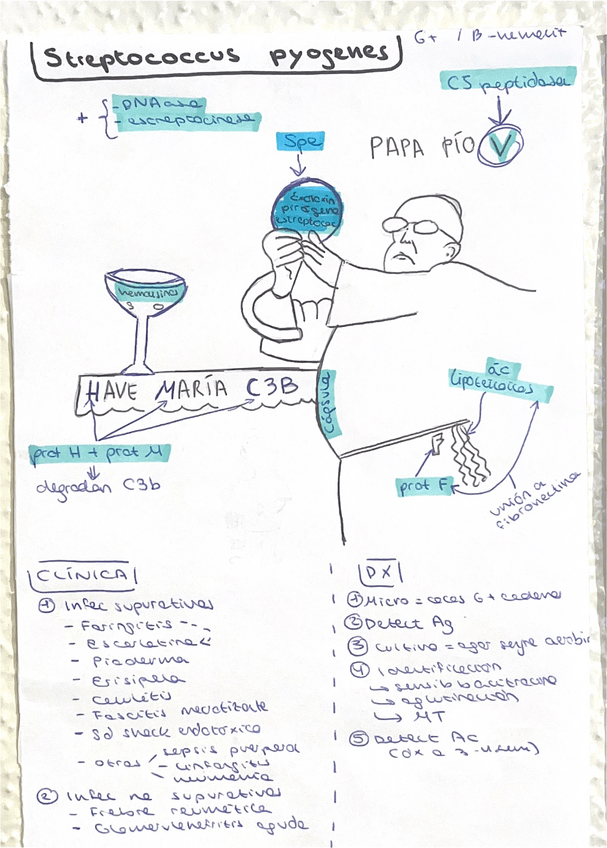 Streptococcus pyogenes
G+ / B-hemolít
C5 peptidasa
+ { - DNAasa
- estreptocinasa
Spe
PAPA PÍO V
Exotoxin
pirógena
estreptoc
hemolisinas
S O
HAVE MARÍA C3B
cápsula
ác
lipoteicoicos
prot H + prot M
degradan C3b
F
prot F
unión a
fibronectina
CLÍNICA
① Infec supurativas
- Faringitis
- Escarlatina
- Pioderma
- Erisipela
- Celulitis
- Fascitis necotizante
- Sd shock endotóxico
- otras sepsis puerperal
- linfangitis
neumonía
② Infec no supurativas
- Fiebre reumática
- Glomerulonefritis aguda
DX
① Micro = cocos G+ cadena
② Detect Ag
③ Cultivo = agar sgre aerobir
④ Identificación
→ sensib bacitracina
→ aglutinación
→ MT
⑤ Detect Ac